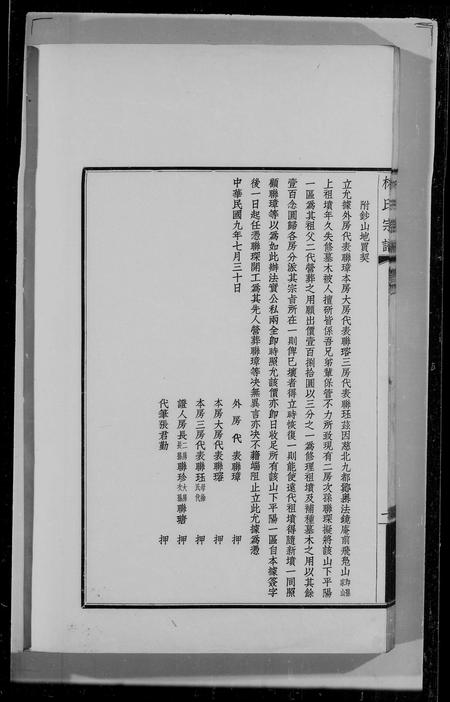 林氏宗譜
附鈔山地買契
立允據外房代表聯璋本房大房代表聯瑢三房代表聯玨茲因慈北九都鄧奧法鏡庵前飛凫山
上祖墳年久失修墓木被人擅砍皆係吾兄弟輩保管不力所致現有二房次孫聯琛擬將該山下平陽
一區爲其祖父二代營葬之用願出價壹百捌拾圓以三分之一爲修理祖墳及補種墓木之用以其餘
壹百念圓歸各房分派其宗旨所在一則俾已壞者得立時恢復一則能使遠代祖墳得隨新墳一同照
顧聯璋等以爲如此辦法實公私兩全卽時照允該價亦卽日收足所有該山下平陽一區自本據簽字
後一日起任憑聯琛開工爲其先人營葬聯璋等決無異言亦決不藉端阻止立此允據爲憑
中華民國九年七月三十日
外房代表聯璋 押
本房大房代表聯瑢 押
本房三房代表聯玨 押
證人房長聯珍聯瑭 押
代筆張君勤 押